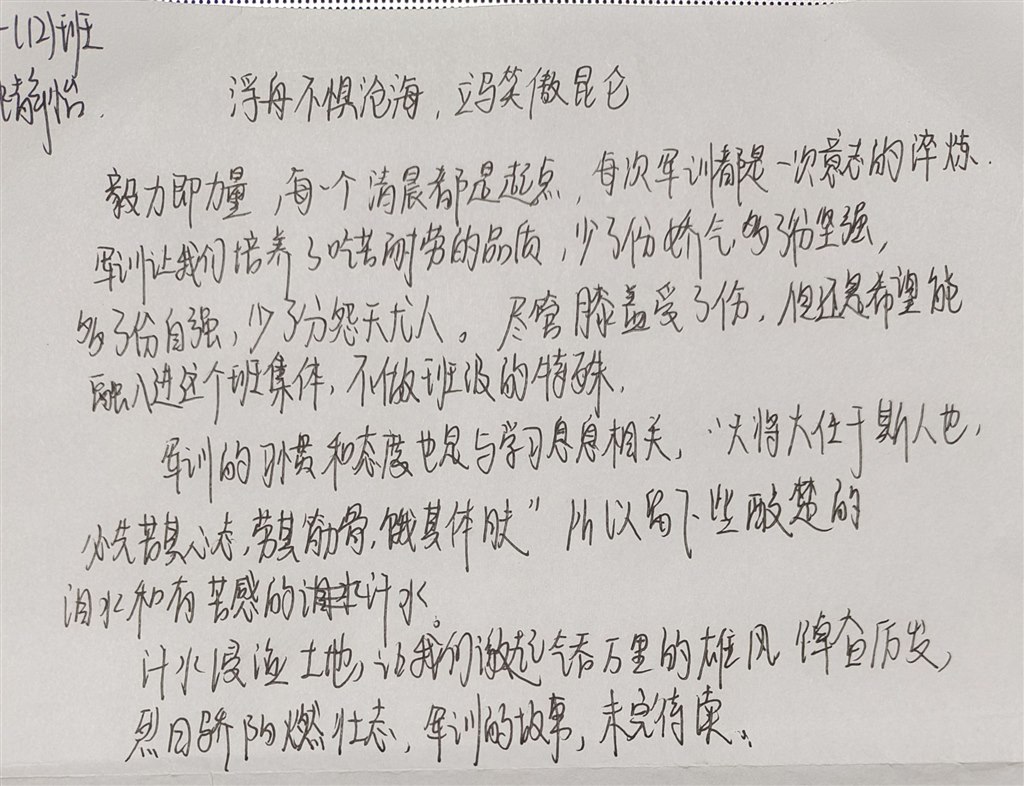 一(12)班
静怡.
浮舟不惧沧海,立马笑傲昆仑
毅力即力量,每一个清晨都是起点,每次军训都是一次意志的淬炼.
军训让我们培养了吃苦耐劳的品质,少了份娇气多了份坚强,
多了份自强,少了分怨天尤人。尽管膝盖受了伤,但还是希望能
融入进这个班集体,不做班级的特殊.
军训的习惯和态度也是与学习息息相关,“天将大任于斯人也,
必先苦其心志,劳其筋骨,饿其体肤”所以留下些酸楚的
泪水和有苦感的汗水。
汁水浸渔土地,让我们激起气吞万里的雄风 惮奋厉发,
烈日骄阳燃壮志,军训的故事,未完待续..